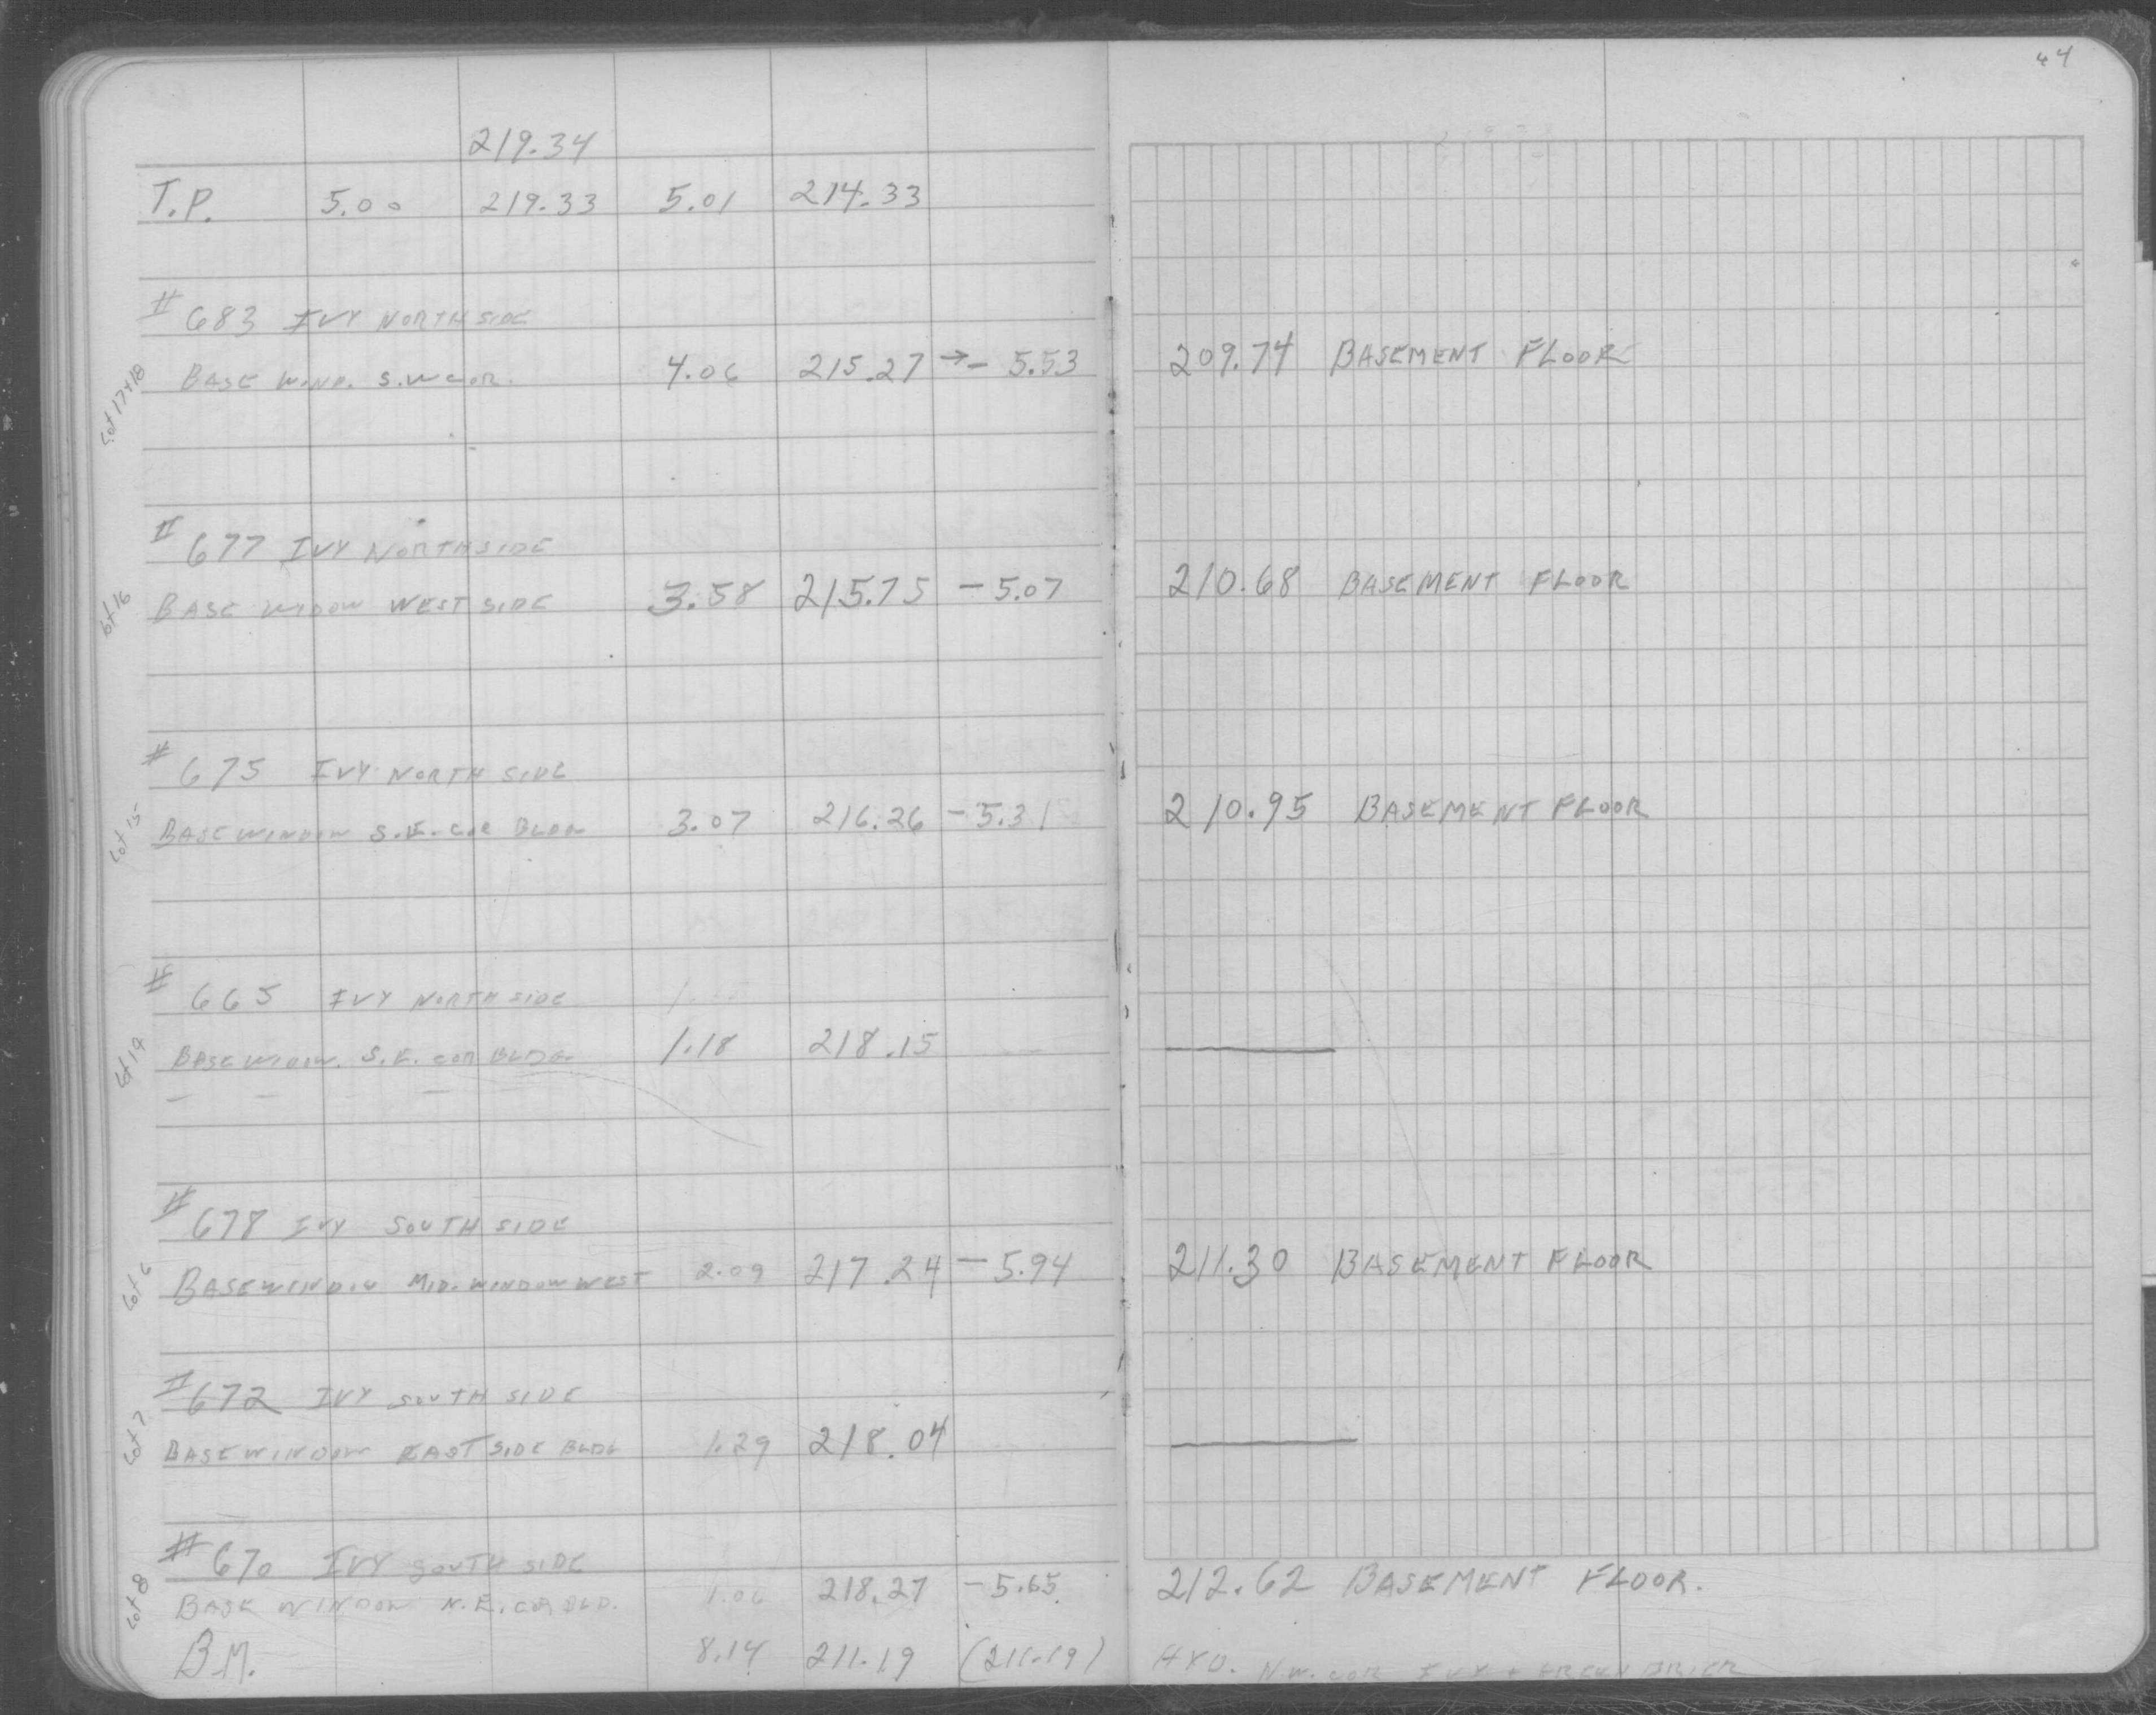 44
219.34
T.P. 5.00 219.33 5.01 214.33
# 683 IVY NORTH SIDE
Lot 17+18
BASE WIND. S.W COR. 4.06 215.27 → - 5.53 209.74 BASEMENT FLOOR
# 677 IVY NORTH SIDE
Lot 16
BASE WIDOW WEST SIDE 3.58 215.75 - 5.07 210.68 BASEMENT FLOOR
# 675 IVY NORTH SIDE
Lot 15
BASE WINDOW S.E. COR BLDG 3.07 216.26 - 5.31 210.95 BASEMENT FLOOR
# 665 IVY NORTH SIDE
Lot 14
BASE WIDOW. S.E. COR BLDG. 1.18 218.15
# 678 IVY SOUTH SIDE
Lot 6
BASE WINDOW MID. WINDOW WEST 2.09 217.24 - 5.94 211.30 BASEMENT FLOOR
# 672 IVY SOUTH SIDE
Lot 7
BASE WINDOW EAST SIDE BLDG 1.29 218.04
# 670 IVY SOUTH SIDE
Lot 8
BASE WINDOW N.E. COR BLD. 1.06 218.27 - 5.65 212.62 BASEMENT FLOOR.
B.M. 8.14 211.19 (211.19) HYD. N.W. COR IVY + GREENBRIER